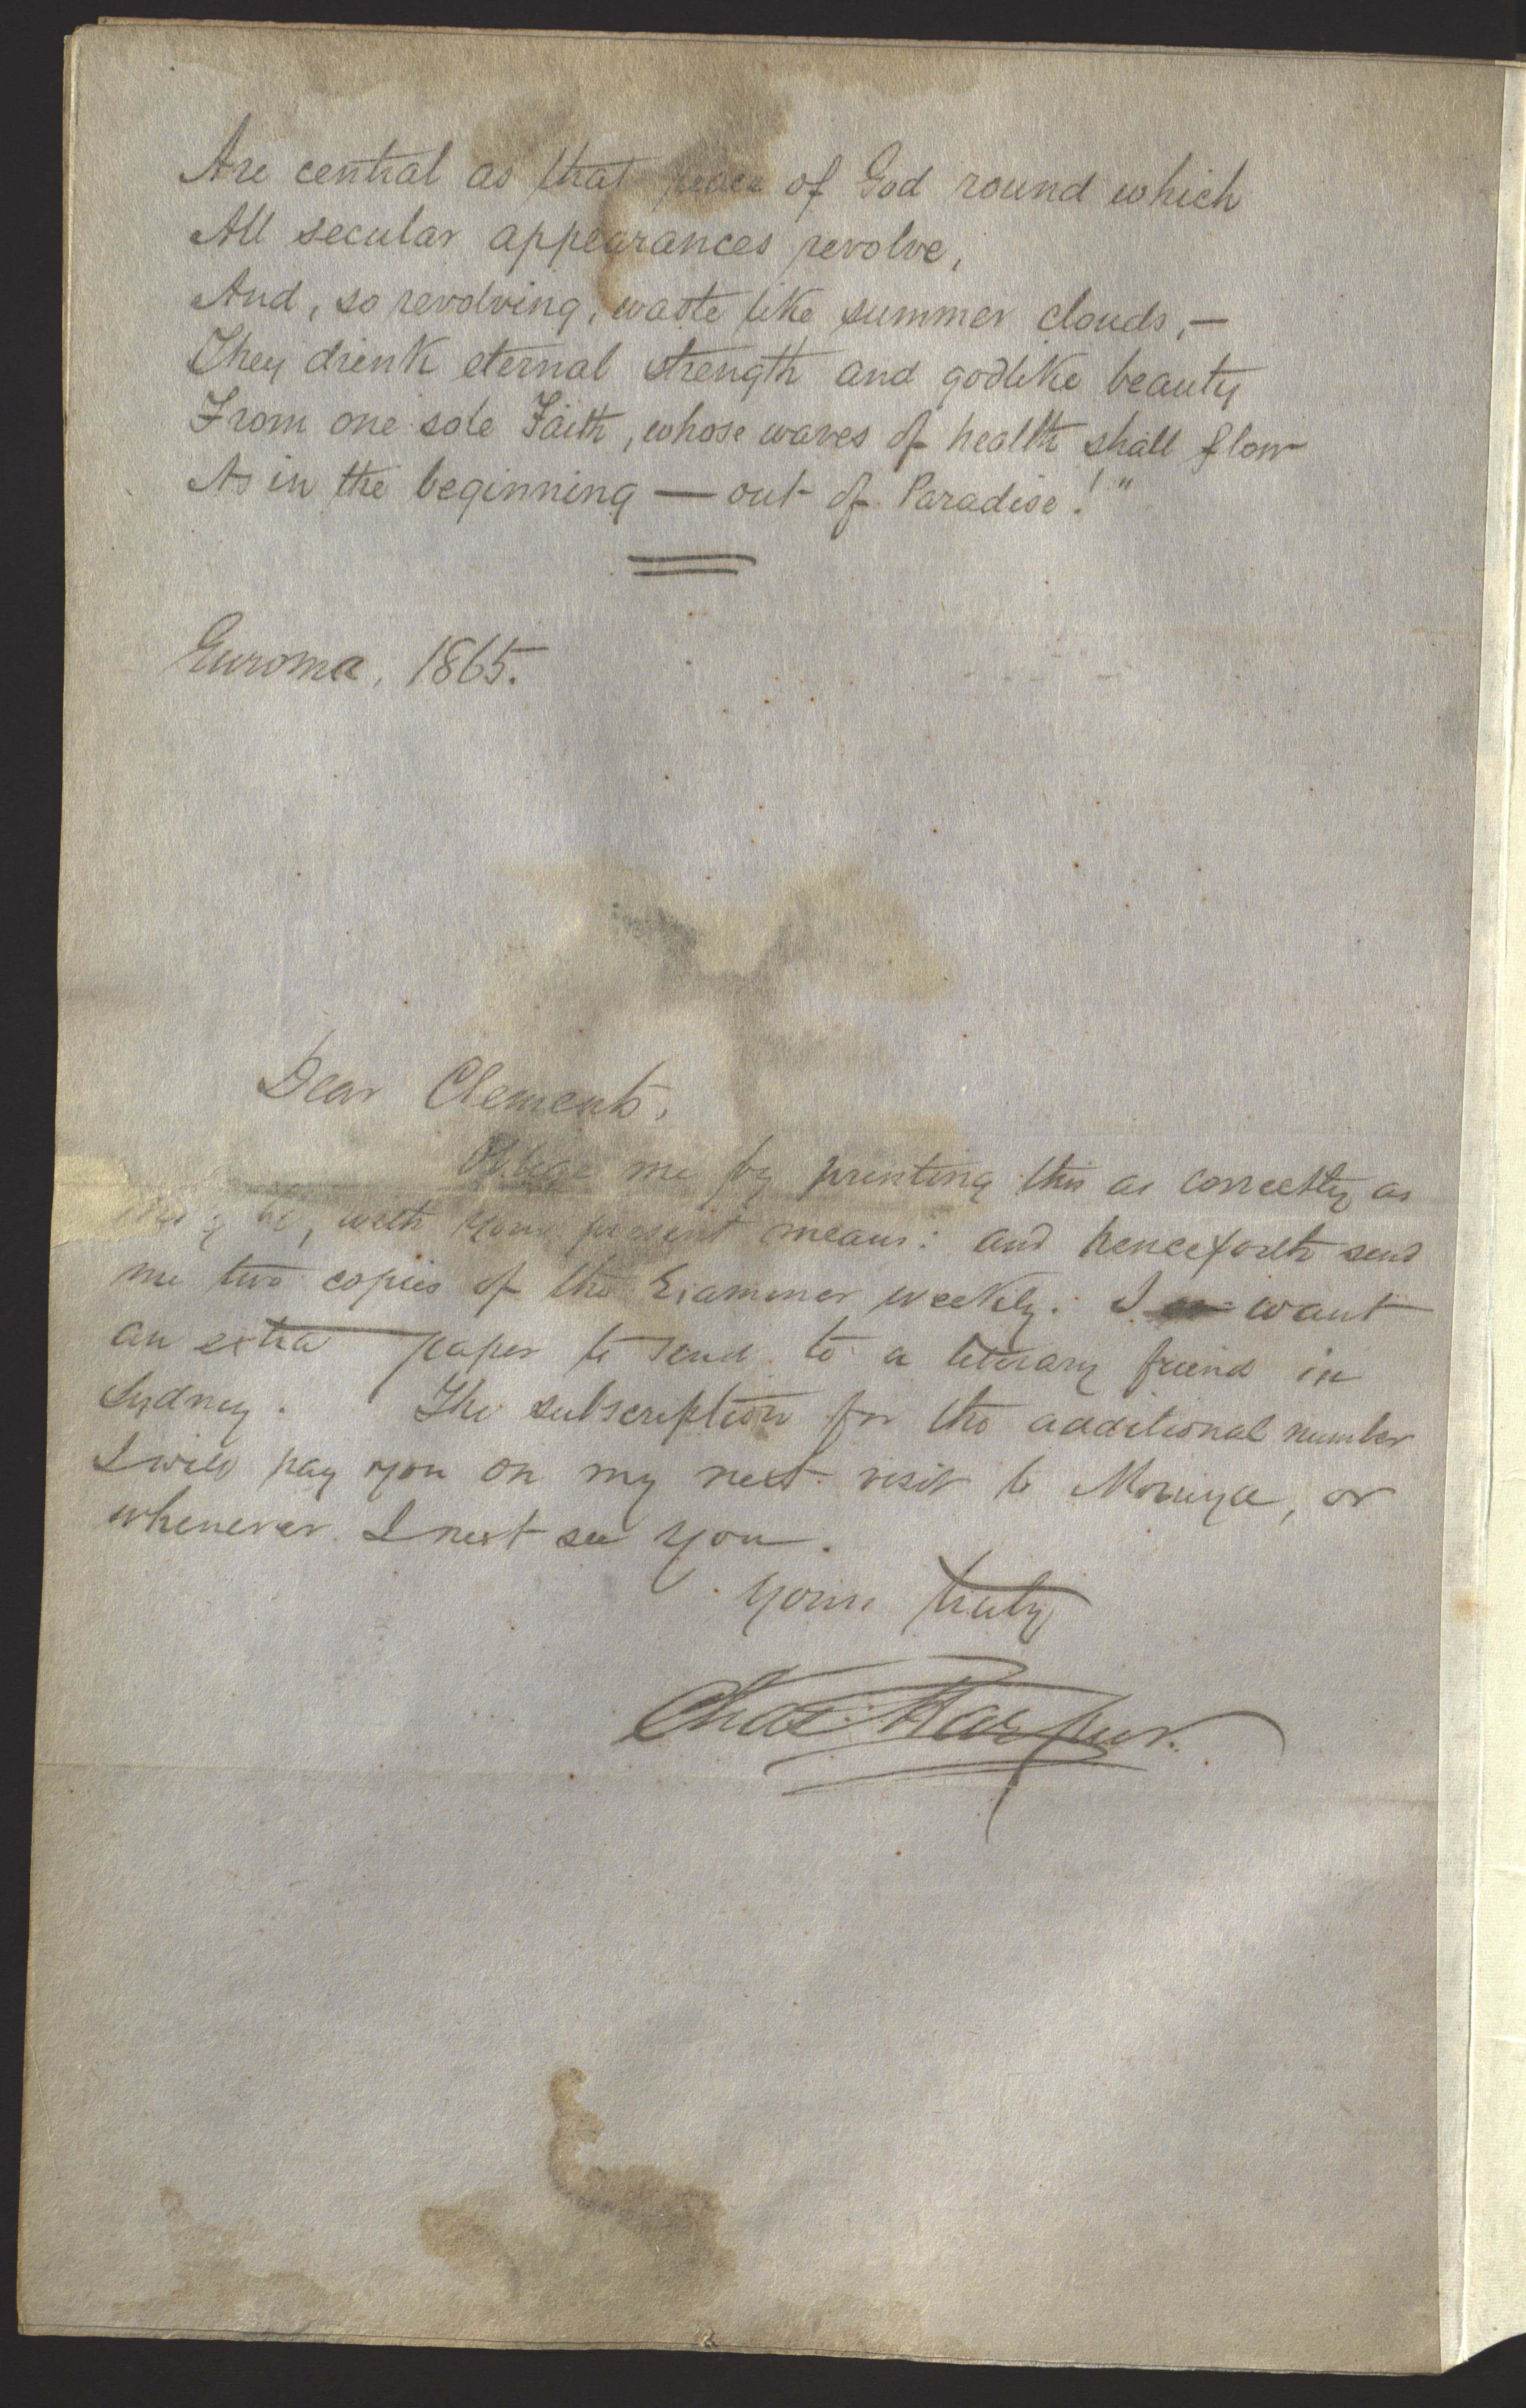 Are central as that peace of God round which
All secular appearances revolve,
And, so revolving, waste like summer clouds,—
They drink eternal strength and godlike beauty
From one sole Faith, whose waves of health shall flow
As in the beginning — out of Paradise!"
Euroma, 1865.
Dear Clements,
Oblige me by printing this as correctly as
may be, with your present means: and henceforth send
me two copies of the Examiner weekly. I want
an extra paper to send to a literary friend in
Sydney. The subscription for the additional number
I will pay you on my next visit to Moruya, or
whenever I next see you.
Yours truly
Chas. Harpur.